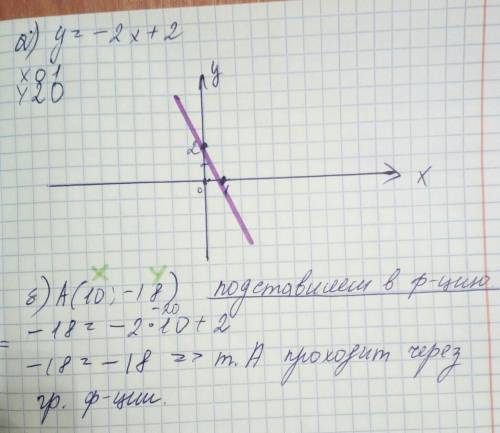 а) y = -2x+2
x 0 1
y 2 0
y
2
0 1
x
x y
б) A(10; -18) подставляем в ф-цию
-20
-18 = -2·10+2
-18 = -18 => т. А проходит через
гр. ф-ции.